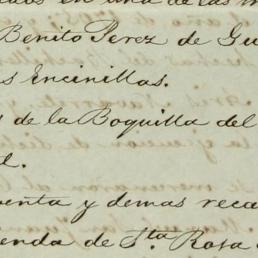 en una de las
Benito Perez de Gu
s Encinillas.
de la Boquilla del
enta y demas reca
enda de Sta Rosa